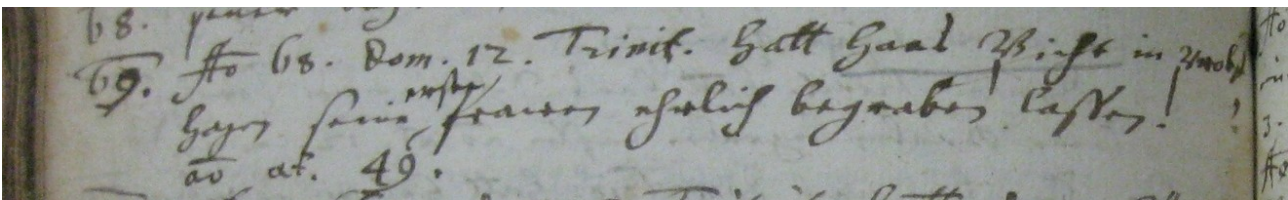 68.
69. Ao 68. Dom. 12. Trinit. hatt Hans Vicht in
hagen seine ersten frawen ehrlich begraben lassen.
ao aet. 49.